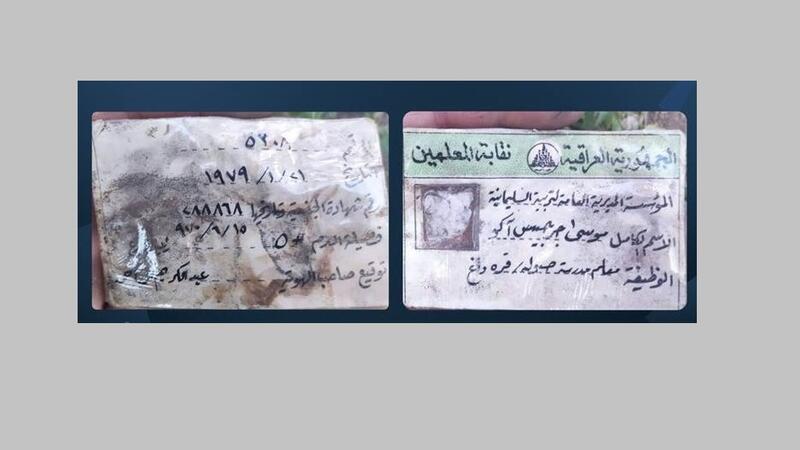 الجمهورية العراقية نقابة المعلمين
المؤسسة المديرية العامة لتربية السليمانية
الاسم الكامل موسى جرجيس آكو
الوظيفة معلم مدرسة قره داغ
٥٢٠٨
١٩٧٩/١/٢١
رقم شهادة الجنسية وتاريخها ٢٨٨٨٦٨
٩٧٠/٦/١٥
فصيلة الدم
توقيع صاحب الهوية